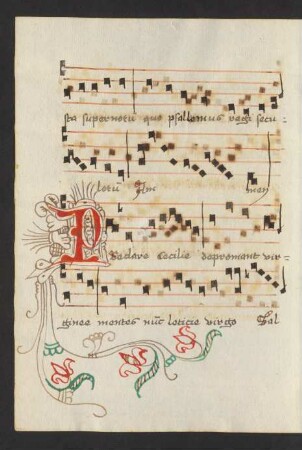 sta supernoru quo psallemus regi secu-
loru Am men
Preclare Cecilie depromant vir-
ginee mentes nuc leticie virgo Sal